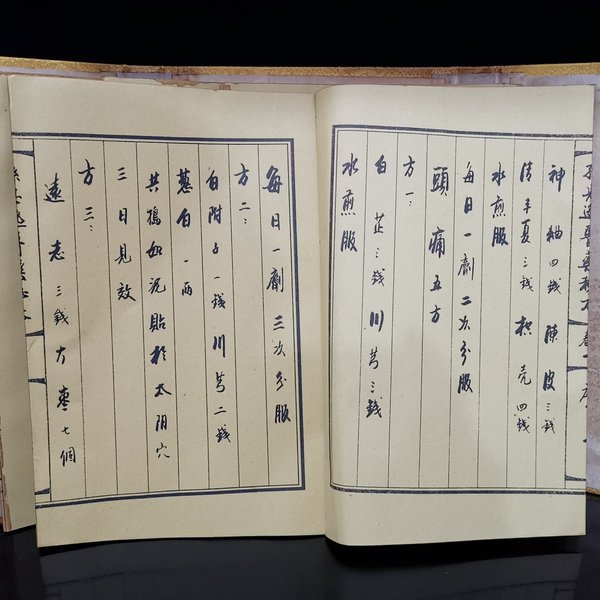 神 紬 四錢 陳 皮 三錢
清半夏 三錢 枳 壳 四錢
水煎服
每日一劑 二次分服
頭痛五方
方一：
白 芷 三錢 川 芎 三錢
水煎服
每日一劑 三次分服
方二：
白附子 一錢 川 芎 二錢
葱白 一兩
共搗如泥貼於太阳穴
三日見效
方三：
遠志 三錢 大棗 七個